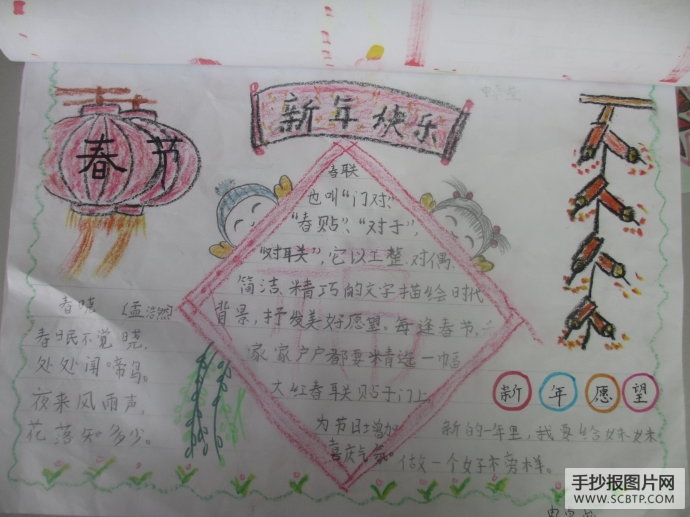 新年快乐
春节
春联
也叫“门对”、
“春贴”、“对子”,
“对联”,它以工整、对偶、
简洁、精巧的文字描绘时代
背景,抒发美好愿望。每逢春节,
家家户户都要精选一幅
大红春联贴于门上,
为节日增加
喜庆气氛。
春晓
(孟浩然)
春眠不觉晓,
处处闻啼鸟。
夜来风雨声,
花落知多少。
新年愿望
新的一年里,我要给妹妹
做一个好榜样。
手抄报图片网
WWW.SCBTP.COM